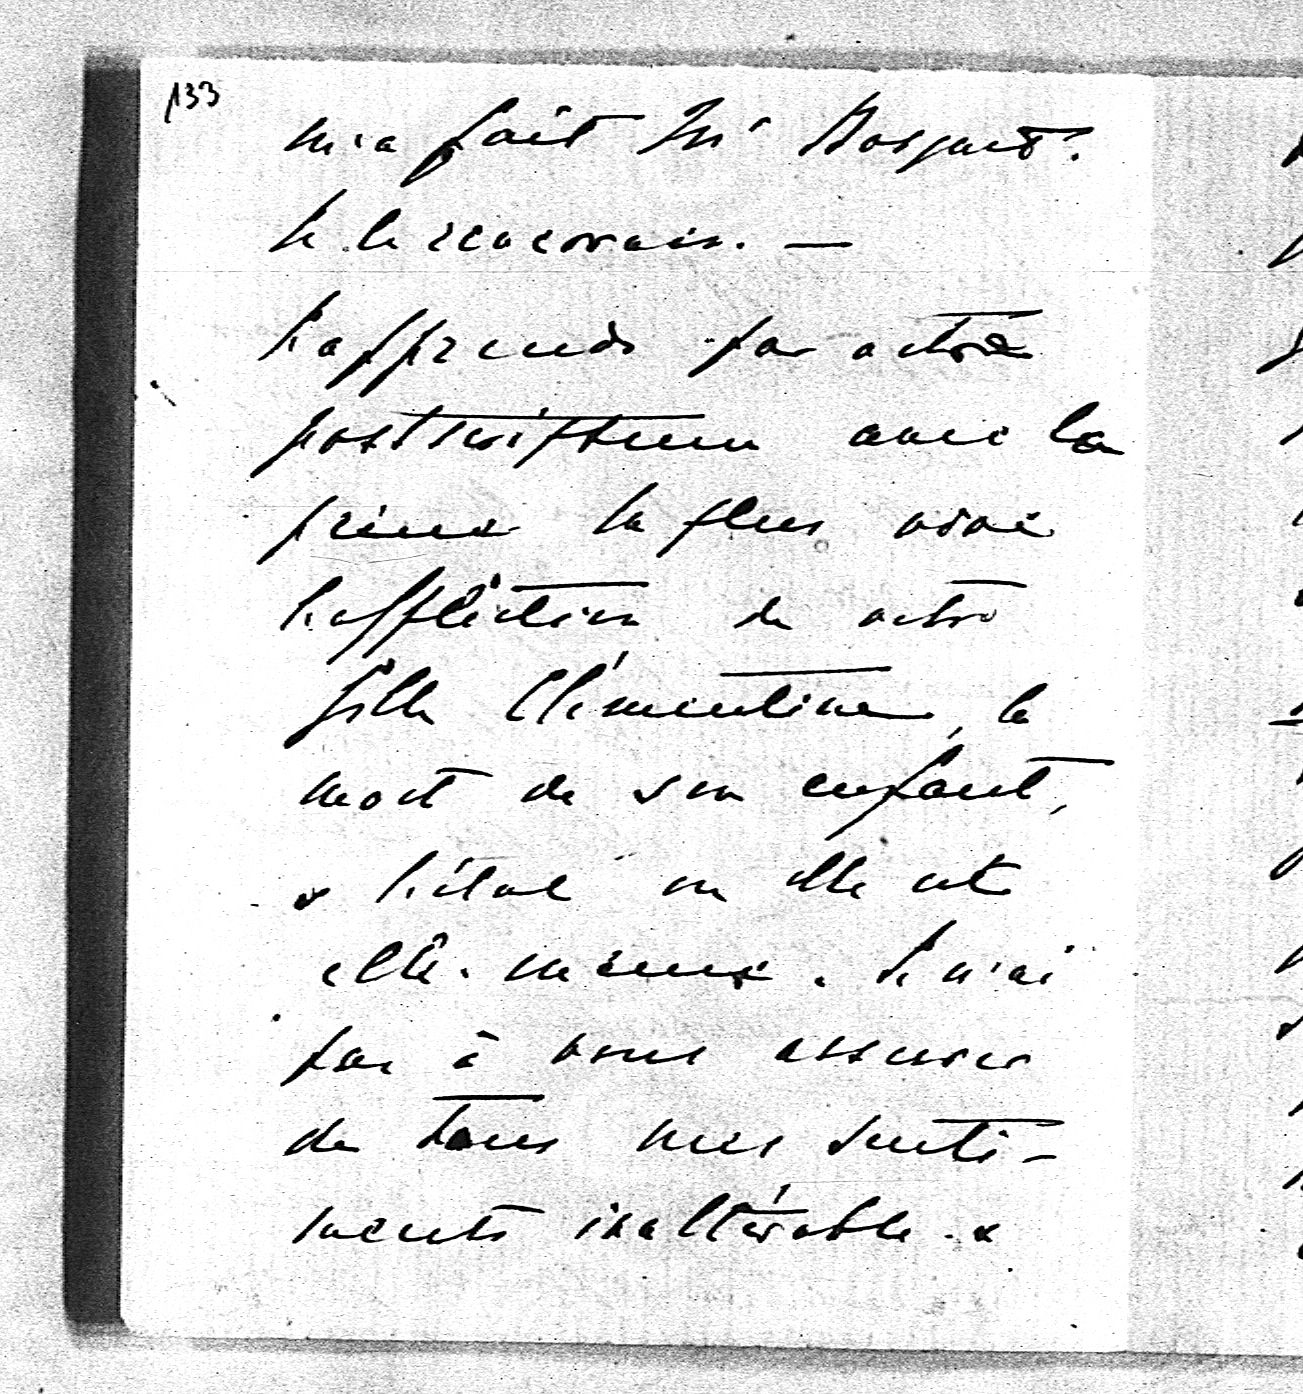 133
m'a fait Mr Bosquet.
Je le recevrais. —
J'apprends par votre
postscriptum avec la
peine la plus vive
l'affliction de votre
fille Clémentine, la
mort de son enfant,
& l'état où elle est
elle-même. Je n'ai
pas à vous assurer
de tous mes senti-
ments inaltérable. &